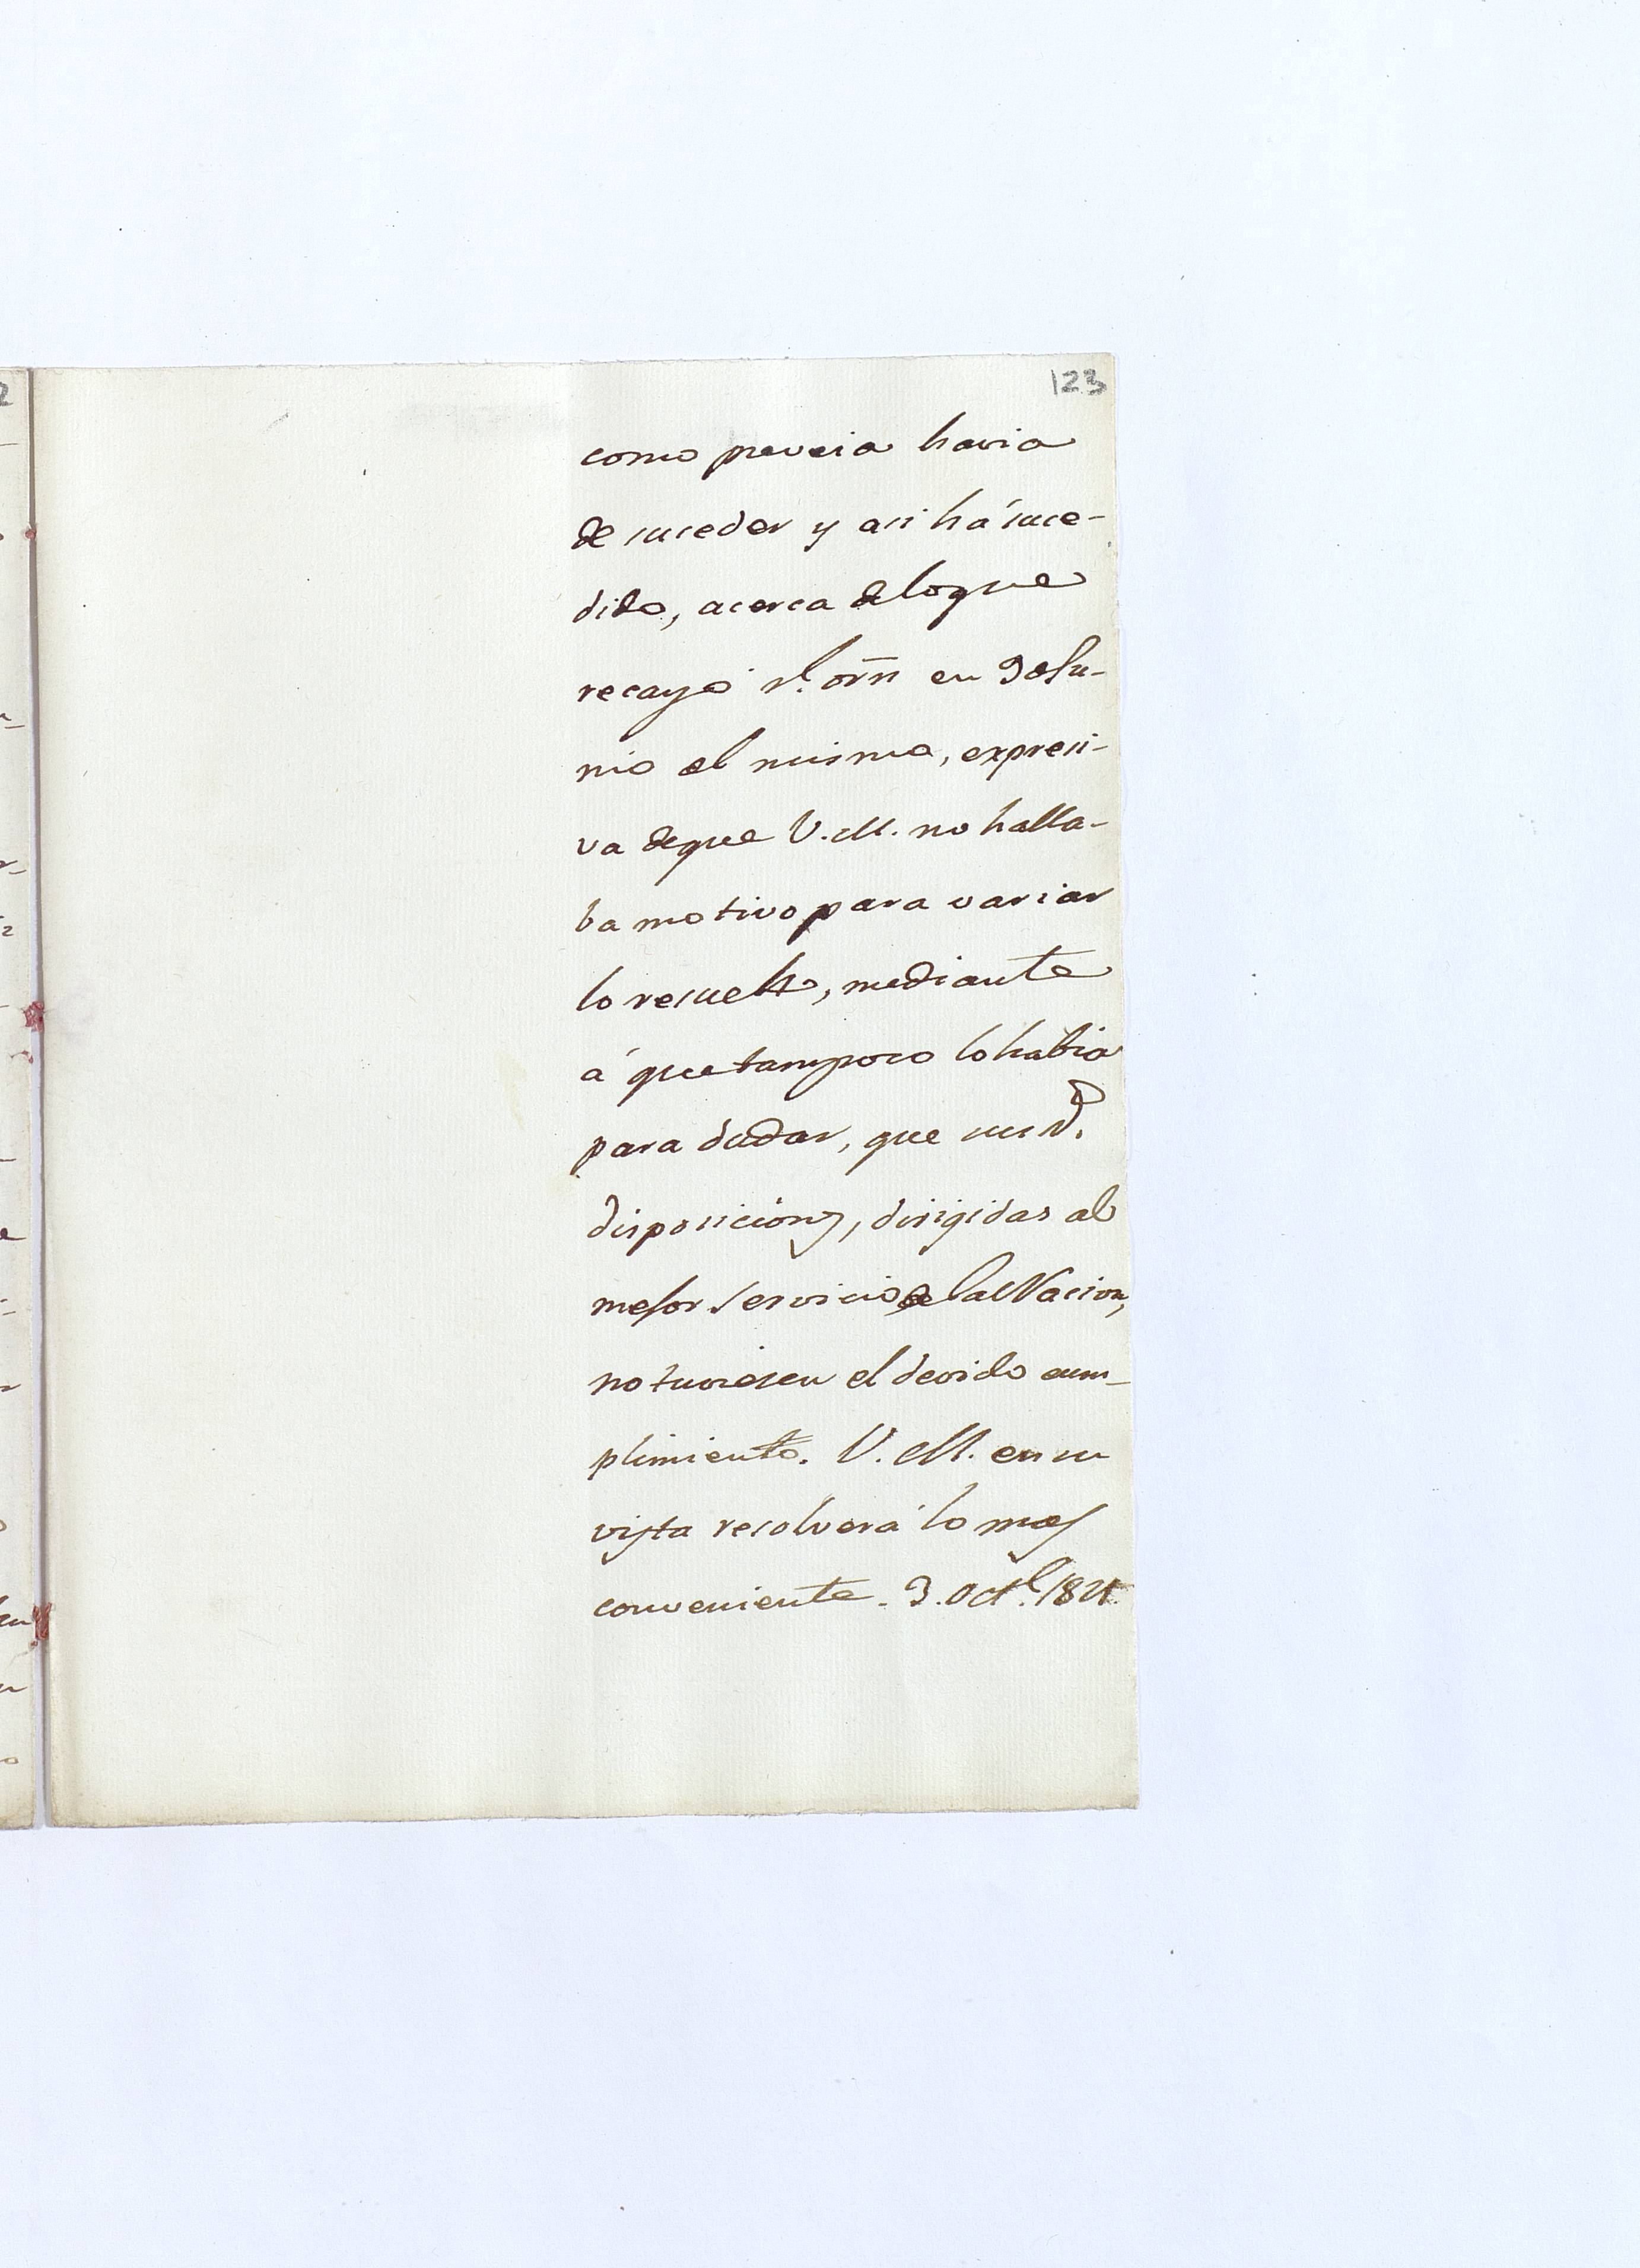 123
como preveia havia
de suceder y asi há suce-
dido, acerca de lo que
recayó rl. orn en 3 de Ju-
nio del mismo, expresi-
va de que V. M. no halla-
ba motivo para variar
lo resuelto, mediante
á que tampoco lo habia
para dudar, que sus Rs.
disposiciones, dirigidas al
mejor servicio de la Nacion,
no tuviesen el devido cum-
plimiento. V. M. en su
vista resolverá lo mas
conveniente. 3. Oct.